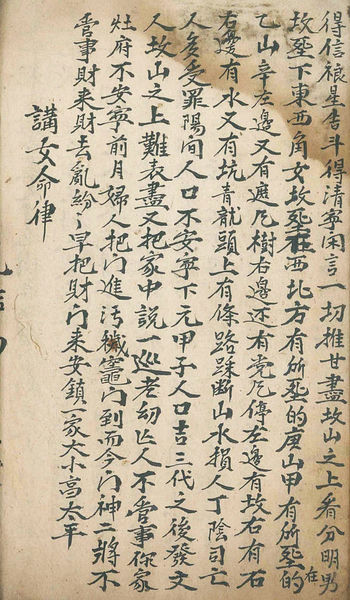 得信禄星吉斗得清寧閑言一切推甘盡故山之上看分明男
坟塟下東西角女坟塟在西北方有所塟的庚山甲有所塟的在
乙山辛左邊又有遮厄樹右邊还有党厄停左邊有坟右有石
右邊有水又有坑青龍頭上有條路跺断山水損人丁陰司亡
人多受罪陽间人口不安寧下元甲子人口吉三代之後發文
人故山之上難表盡又把家中説一巡老幼仁人不啻事你家
灶府不安寧前月婦人把门進污穢竈门到而今门神二將不
啻事財来財去亂紛了早把財门来安鎮一家大小高太平
講女命律